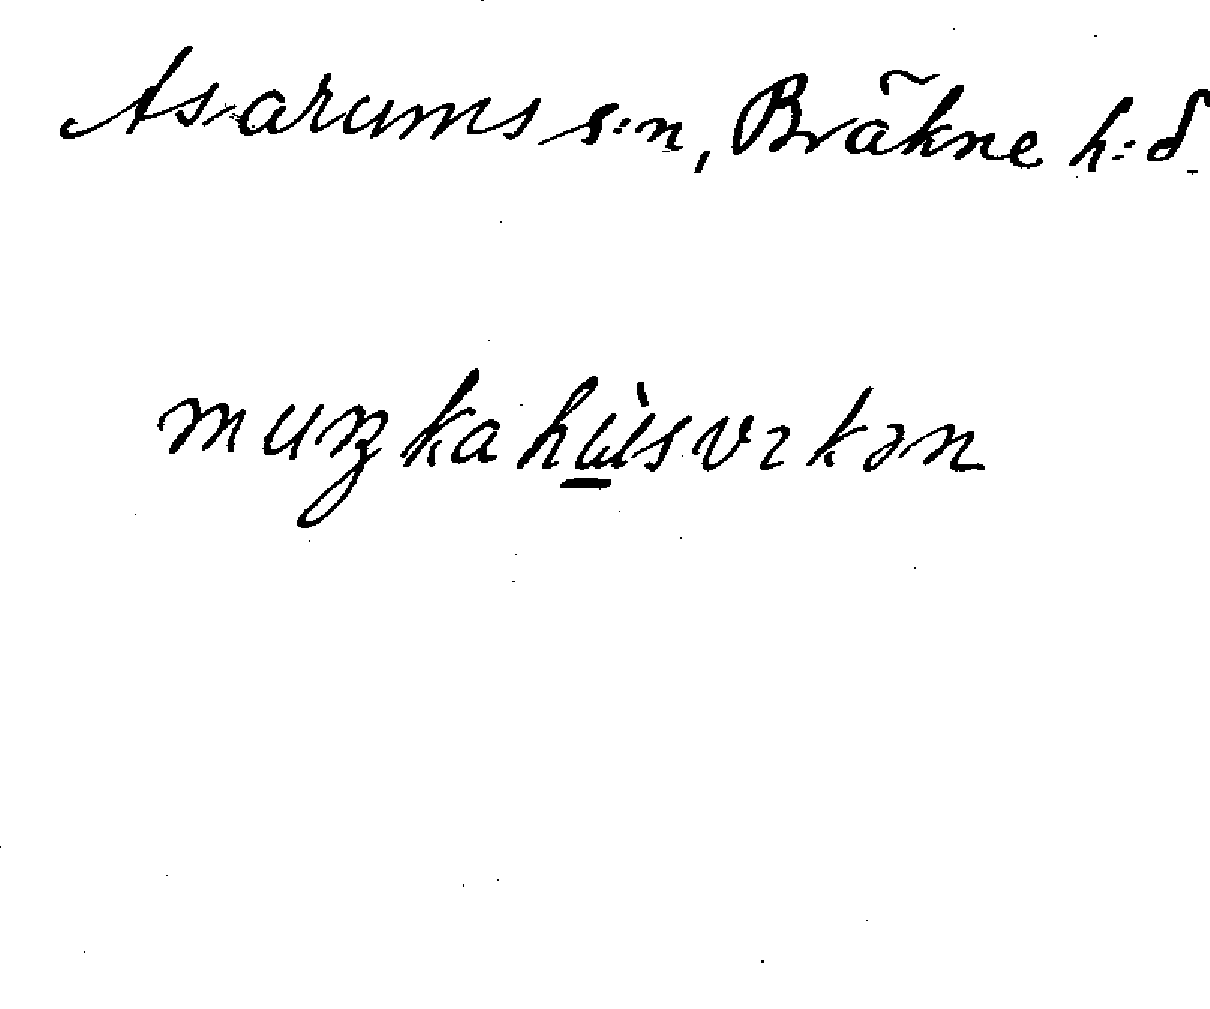 Asarums s:n, Bräkne h:d.
muŋkahù̲svɪkən